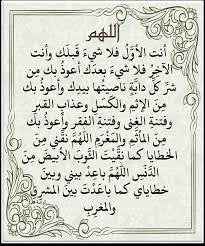 اللهم
أنت الأوَّلُ فلا شيءَ قَبلَك وأنت
الآخِرُ فلا شيءَ بعدَك أعوذُ بك مِن
شرِّ كلِّ دابَّةٍ ناصيتُها بيدِك وأعوذُ بك
مِنَ الإثمِ والكَسَلِ وعذابِ القبرِ
وفتنةِ الغِنى وفتنةِ الفقرِ وأعوذُ بك
مِنَ المأثمِ والمَغرَمِ اللَّهُمَّ نَقِّني مِنَ
الخطايا كما نَقَّيتَ الثَّوبَ الأبيضَ مِنَ
الدَّنَسِ اللَّهُمَّ باعِدْ بيني وبينَ
خطايايَ كما باعَدْتَ بينَ المشرقِ
والمغربِ